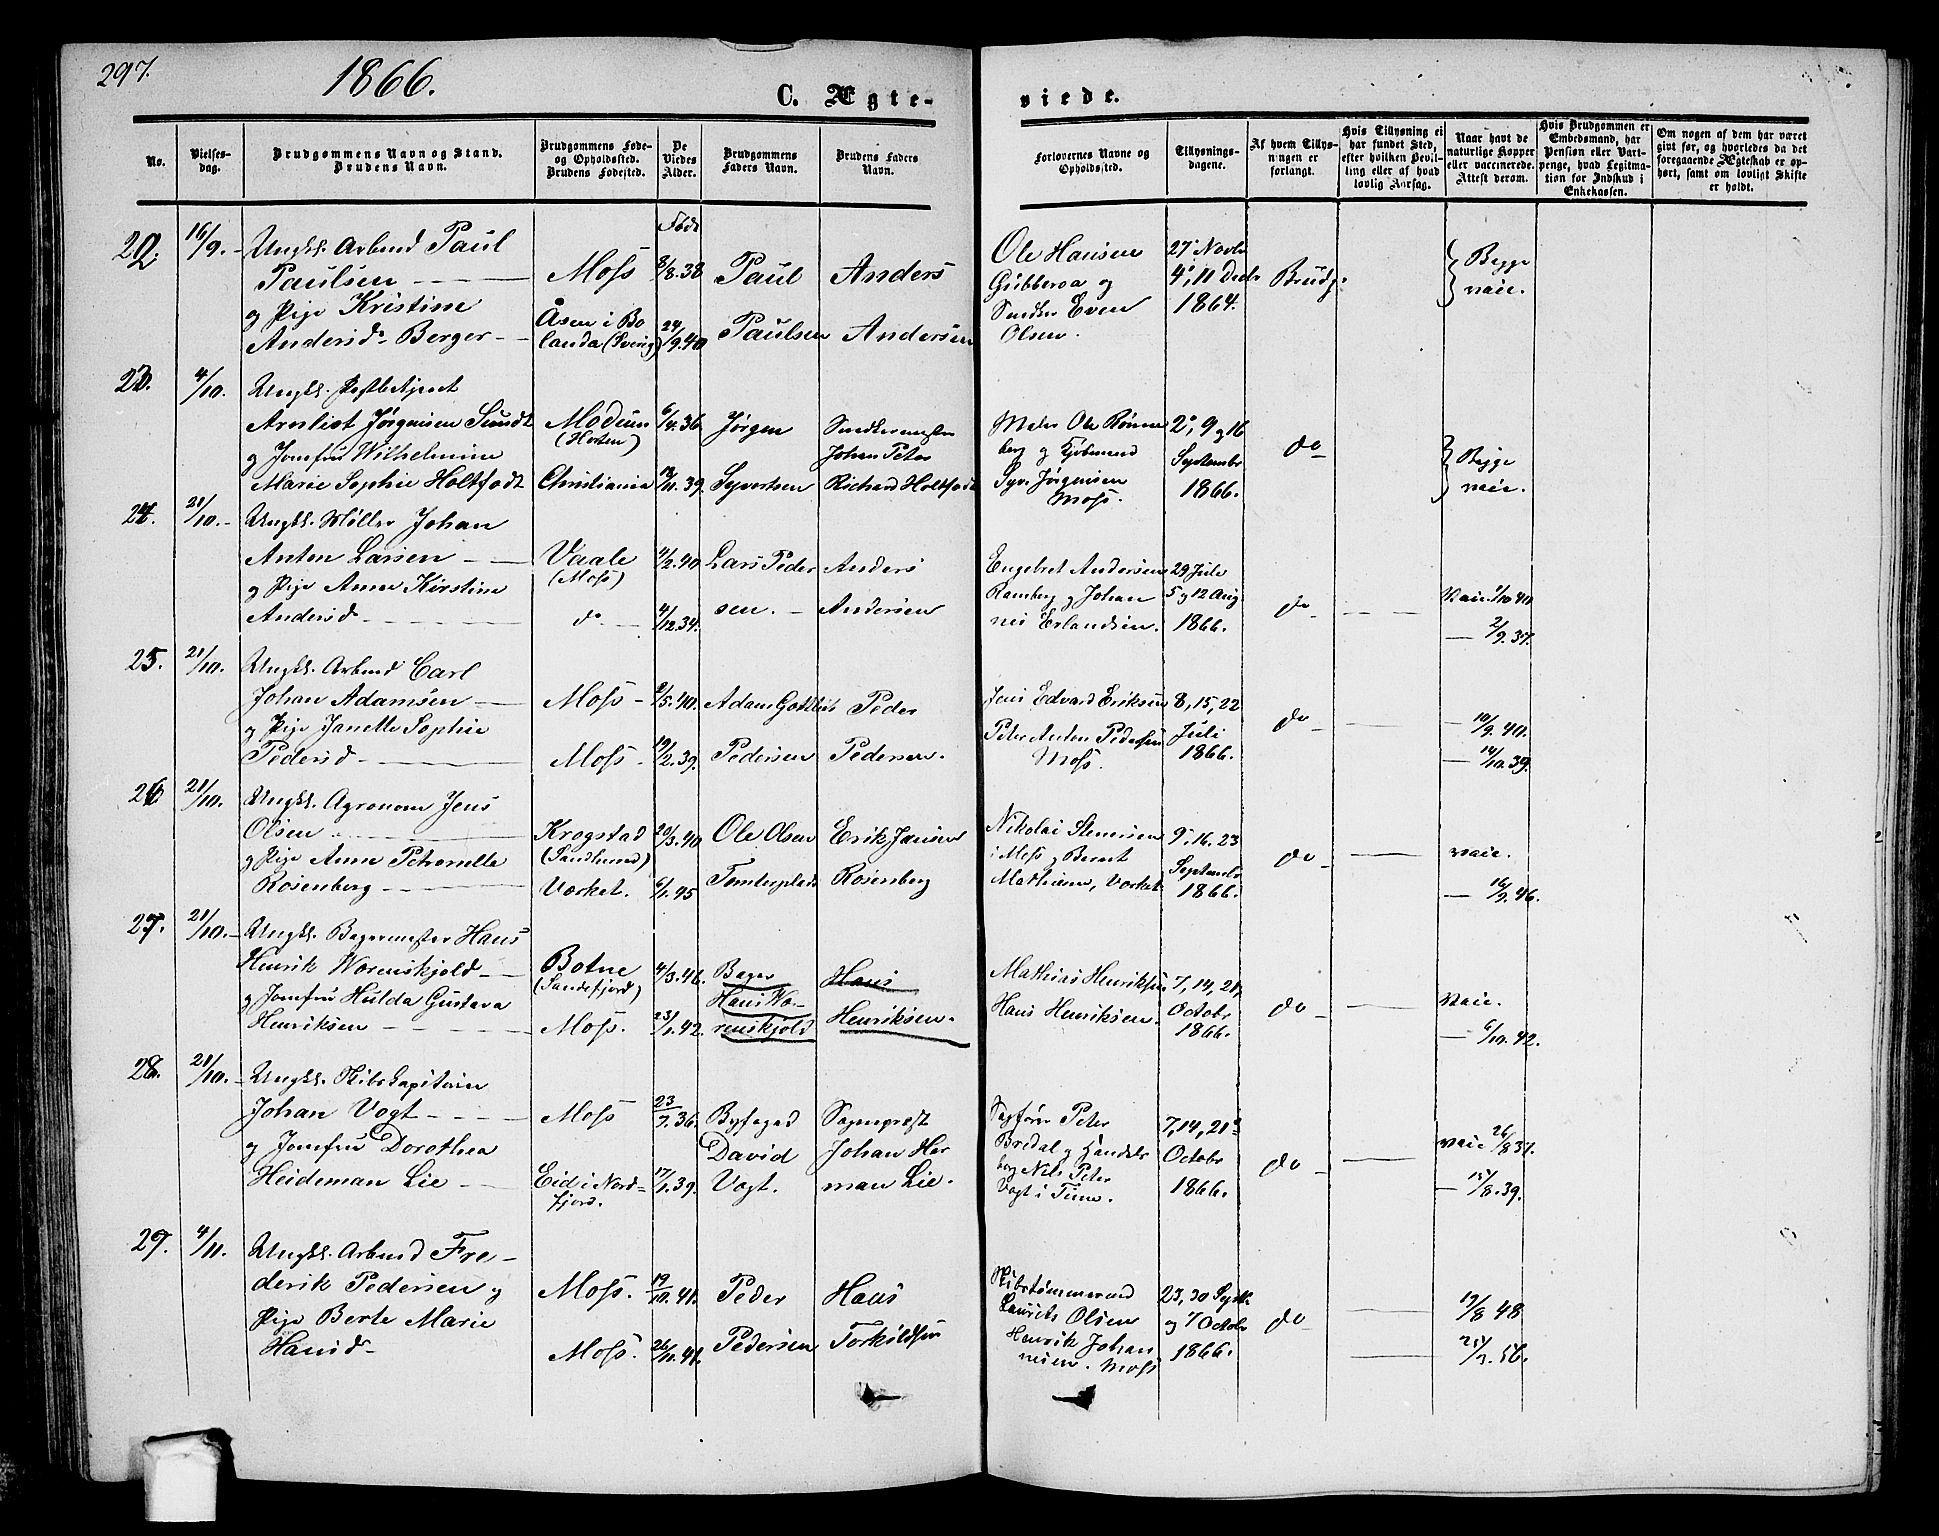 297.
1866.
C. Ægte-
viede.
No.
Vielses-
dag.
Brudgommens Navn og Stand.
Brudens Navn.
Brudgommens Føde-
og Opholdssted.
Brudens Fødested.
De
Viedes
Alder.
Brudgommens
Faders Navn.
Brudens Faders
Navn.
Forlovernes Navne og
Opholdssted.
Tillysnings-
dagene.
Af hvem Tillys-
ningen er
forlangt.
Hvis Tillysning ei
har fundet Sted,
efter hvilken Bevil-
ling eller af hvad
lovlig Aarsag.
Naar havt de
naturlige Kopper
eller vaccinerede.
Attest derom.
Hvis Brudgommen er
Embedsmand, har
Pension eller Vart-
penge, hvad Legitima-
tion for Indskud i
Enkekassen.
Om nogen af dem har været
givt før, og hvorledes da det
foregaaende Ægteskab er op-
hørt, samt om lovligt Skifte
er holdt.
22. 16/9. Ungk. Arbmd Paul
Paulsen
og Pige Kristine
Andersd. Berger
Moss
Åsen i Bo
landa (Sverig)
Født
8/8.38
24/9.40
Paul
Paulsen
Anders
Andersen
Ole Hansen
Gubberoa og
Smeker Even
Olsen.
27 Novbr
4, 11 Decbr
1864.
Brudg.
Begge
vacc.
23. 4/10. Ungk. Postbetjent
Arnliot Jørgensen Sundt
og Jomfru Wilhelmine
Marie Sophie Holtfodt
Modum
(Horten)
Christiania
6/4.36
18/11.39.
Jørgen
Syvertsen
Snedkermester
Johan Peter
Richard Holtfodt
Maler Ole Rønne
berg og Kjøbmand
Syv. Jørgensen
Moss.
2, 9 og 16
Septembr
1866.
do
Begge
vacc.
24. 21/10. Ungk. Møller Johan
Anton Larsen
og Pige Anne Kirstine
Andersd.
Vaale
(Moss)
do
4/2.40
4/12.34.
Lars Peder
sen.
Anders
Andersen
Engebret Andersen
Ramberg og Johan
nes Erlandsen.
29 Juli
5 og 12 Aug
1866.
do
Vacc. 9/10 40
2/9.37.
25. 21/10. Ungk. Arbmd Carl
Johan Adamsen
og Pige Janette Sophie
Pedersd.
Moss
Moss
9/5.40.
19/2.39.
Adam Gottlieb
Pedersen
Peder
Pedersen.
Jens Edvard Eriksen
Peter Anton Pedersen
Moss.
8, 15, 22
Juli
1866.
do
10/9.40.
14/10.39.
26. 21/10. Ungk. Agronom Jens
Olsen
og Pige Anne Petronelle
Rosenberg
Krogstad
(Sandlund)
Vorket.
20/3.40
6/1.45
Ole Olsen
Tomterplads
Erik Jansen
Rosenberg
Nikolai Stenersen
i Moss og Bernt
Mathisen, Vorket
9, 16, 23
Septembr
1866.
do
vacc.
16/9.46.
27. 21/10. Ungk. Bagermester Hans
Henrik Wormskjold
og Jomfru Hulda Gustava
Henriksen
Botne
(Sandefjord)
Moss.
4/3.46.
23/1.42.
Bager
Hans Wo-
rmskjold
Hans
Henriksen.
Mathias Henriksen
Hans Henriksen.
7, 14, 21,
Octobr
1866.
do
Vacc.
6/10.42.
28. 21/10. Ungk. Skibskapitain
Johan Vogt
og Jomfru Dorothea
Heideman Lie
Moss
Eid i Nord-
fjord.
23/7.36.
17/1.39.
Byfoged
David
Vogt.
Sognepræst
Johan Her
man Lie.
Sagfører Peter
Bredal og Handels
berg Nils Peter
Vogt i
7, 14, 21
Octobr
1866.
do
vacc 26/8 37.
15/8.39.
29. 4/11. Ungk. Arbmd Fre-
derik Pedersen og
Pige Berte Marie
Hansd.
Moss.
Moss.
19/10.41.
26/11.41.
Peder
Pedersen
Hans
Torkildsen
Skibstømmermand
Laurits Olsen
Henrik Johan
nesen. Moss
23, 30 Septbr
og 7 Octobr
1866.
do
17/8 48